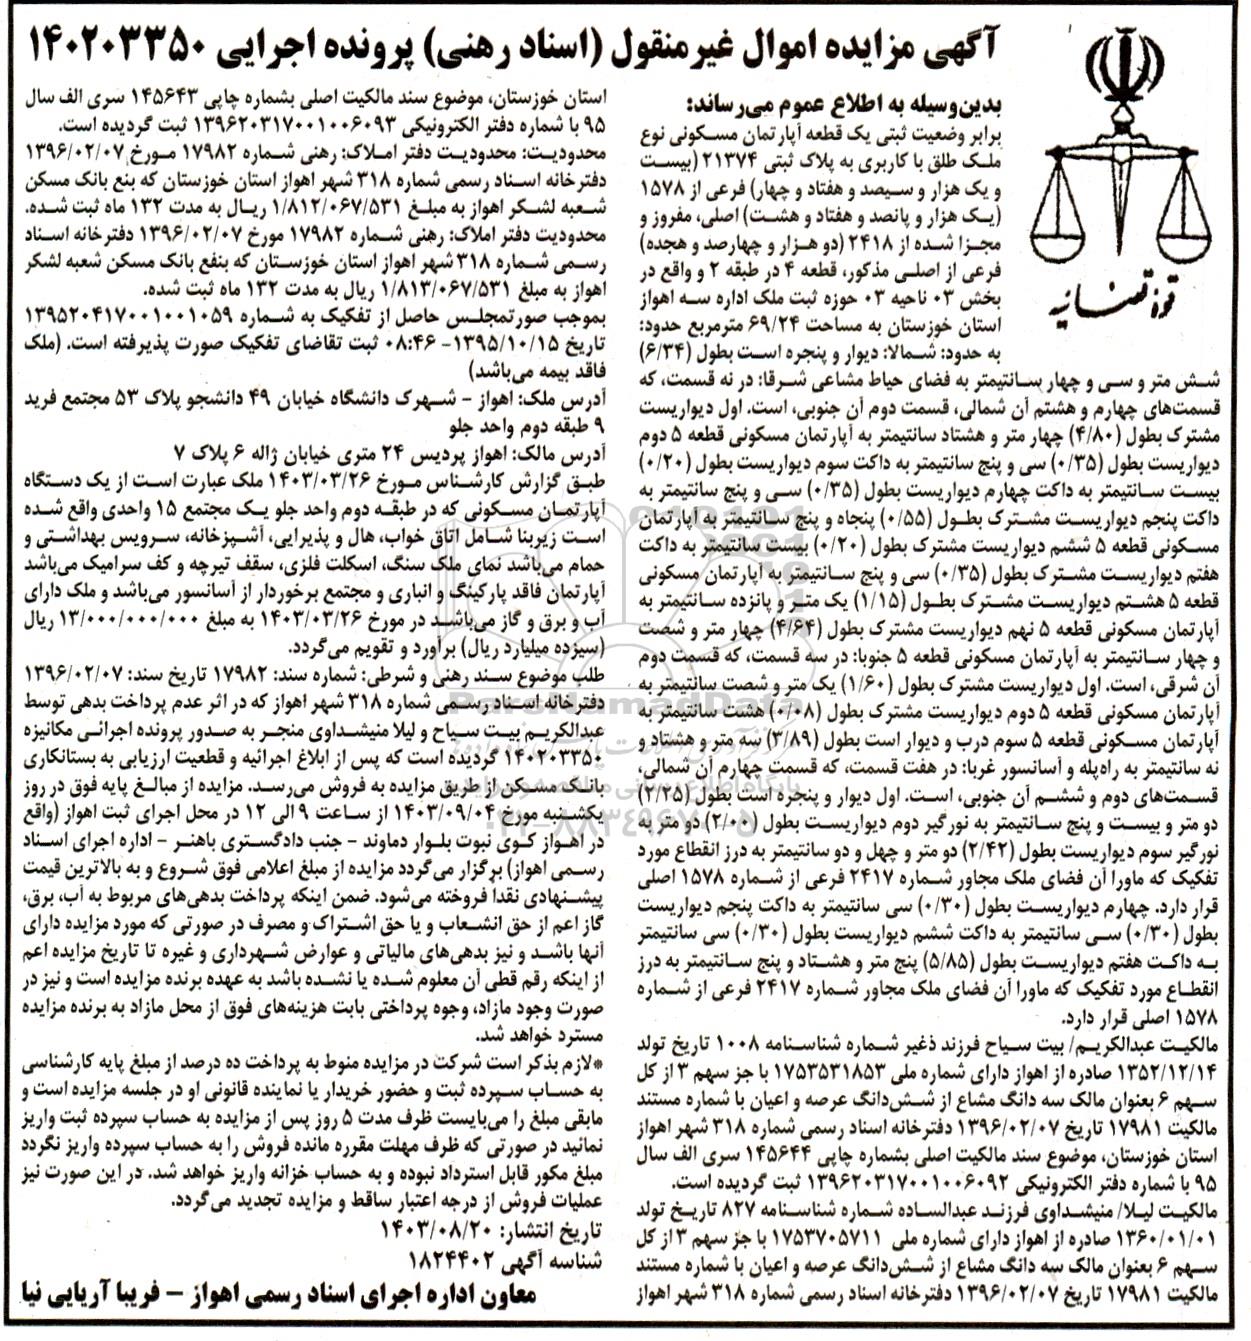 آگهی مزایده اموال غیرمنقول (اسناد رهنی) پرونده اجرایی ۱۴۰۲۰۳۳۵۰
قوه قضائیه
بدین‌وسیله به اطلاع عموم می‌رساند:
برابر وضعیت ثبتی یک قطعه آپارتمان مسکونی نوع
ملک طلق با کاربری به پلاک ثبتی ۲۱۳۷۴ (بیست
و یک هزار و سیصد و هفتاد و چهار) فرعی از ۱۵۷۸
(یک هزار و پانصد و هفتاد و هشت) اصلی، مفروز و
مجزا شده از ۲۴۱۸ (دو هزار و چهارصد و هجده)
فرعی از اصلی مذکور، قطعه ۴ در طبقه ۲ و واقع در
بخش ۰۳ ناحیه ۰۳ حوزه ثبت ملک اداره سه اهواز
استان خوزستان به مساحت ۶۹/۲۴ مترمربع حدود:
به حدود: شمالا: دیوار و پنجره است بطول (۶/۳۴)
شش متر و سی و چهار سانتیمتر به فضای حیاط مشاعی شرقا: در نه قسمت، که
قسمت‌های چهارم و هشتم آن شمالی، قسمت دوم آن جنوبی، است. اول دیواریست
مشترک بطول (۴/۸۰) چهار متر و هشتاد سانتیمتر به آپارتمان مسکونی قطعه ۵ دوم
دیواریست بطول (۰/۳۵) سی و پنج سانتیمتر به داکت سوم دیواریست بطول (۰/۲۰)
بیست سانتیمتر به داکت چهارم دیواریست بطول (۰/۳۵) سی و پنج سانتیمتر به
داکت پنجم دیواریست مشترک بطول (۰/۵۵) پنجاه و پنج سانتیمتر به آپارتمان
مسکونی قطعه ۵ ششم دیواریست مشترک بطول (۰/۲۰) بیست سانتیمتر به داکت
هفتم دیواریست مشترک بطول (۰/۳۵) سی و پنج سانتیمتر به آپارتمان مسکونی
قطعه ۵ هشتم دیواریست مشترک بطول (۱/۱۵) یک متر و پانزده سانتیمتر به
آپارتمان مسکونی قطعه ۵ نهم دیواریست مشترک بطول (۴/۶۴) چهار متر و شصت
و چهار سانتیمتر به آپارتمان مسکونی قطعه ۵ جنوبا: در سه قسمت، که قسمت دوم
آن شرقی، است. اول دیواریست مشترک بطول (۱/۶۰) یک متر و شصت سانتیمتر به
آپارتمان مسکونی قطعه ۵ دوم دیواریست مشترک بطول (۰/۰۸) هشت سانتیمتر به
آپارتمان مسکونی قطعه ۵ سوم درب و دیوار است بطول (۳/۸۹) سه متر و هشتاد و
نه سانتیمتر به راه‌پله و آسانسور غربا: در هفت قسمت، که قسمت چهارم آن شمالی،
قسمت‌های دوم و ششم آن جنوبی، است. اول دیوار و پنجره است بطول (۲/۲۵)
دو متر و بیست و پنج سانتیمتر به نورگیر دوم دیواریست بطول (۲/۰۰) دو متر به
نورگیر سوم دیواریست بطول (۲/۴۲) دو متر و چهل و دو سانتیمتر به درز انقطاع مورد
تفکیک که ماورا آن فضای ملک مجاور شماره ۲۴۱۷ فرعی از شماره ۱۵۷۸ اصلی
قرار دارد. چهارم دیواریست بطول (۰/۳۰) سی سانتیمتر به داکت پنجم دیواریست
بطول (۰/۳۰) سی سانتیمتر به داکت ششم دیواریست بطول (۰/۳۰) سی سانتیمتر
به داکت هفتم دیواریست بطول (۵/۸۵) پنج متر و هشتاد و پنج سانتیمتر به درز
انقطاع مورد تفکیک که ماورا آن فضای ملک مجاور شماره ۲۴۱۷ فرعی از شماره
۱۵۷۸ اصلی قرار دارد.
مالکیت عبدالکریم/ بیت سیاح فرزند ذغیر شماره شناسنامه ۱۰۰۸ تاریخ تولد
۱۳۵۲/۱۲/۱۴ صادره از اهواز دارای شماره ملی ۱۷۵۳۵۳۱۸۵۳ با جز سهم ۳ از کل
سهم ۶ بعنوان مالک سه دانگ مشاع از شش‌دانگ عرصه و اعیان با شماره مستند
مالکیت ۱۷۹۸۱ تاریخ ۱۳۹۶/۰۲/۰۷ دفترخانه اسناد رسمی شماره ۳۱۸ شهر اهواز
استان خوزستان، موضوع سند مالکیت اصلی بشماره چاپی ۱۴۵۶۴۴ سری الف سال
۹۵ با شماره دفتر الکترونیکی ۱۳۹۶۲۰۳۱۷۰۰۱۰۰۶۰۹۲ ثبت گردیده است.
مالکیت لیلا/ منیشداوی فرزند عبدالساده شماره شناسنامه ۸۲۷ تاریخ تولد
۱۳۶۰/۰۱/۰۱ صادره از اهواز دارای شماره ملی ۱۷۵۳۷۰۵۷۱۱ با جز سهم ۳ از کل
سهم ۶ بعنوان مالک سه دانگ مشاع از شش‌دانگ عرصه و اعیان با شماره مستند
مالکیت ۱۷۹۸۱ تاریخ ۱۳۹۶/۰۲/۰۷ دفترخانه اسناد رسمی شماره ۳۱۸ شهر اهواز
استان خوزستان، موضوع سند مالکیت اصلی بشماره چاپی ۱۴۵۶۴۳ سری الف سال
۹۵ با شماره دفتر الکترونیکی ۱۳۹۶۲۰۳۱۷۰۰۱۰۰۶۰۹۳ ثبت گردیده است.
محدودیت: محدودیت دفتر املاک: رهنی شماره ۱۷۹۸۲ مورخ ۱۳۹۶/۰۲/۰۷
دفترخانه اسناد رسمی شماره ۳۱۸ شهر اهواز استان خوزستان که بنع بانک مسکن
شعبه لشکر اهواز به مبلغ ۱/۸۱۲/۰۶۷/۵۳۱ ریال به مدت ۱۳۲ ماه ثبت شده.
محدودیت دفتر املاک: رهنی شماره ۱۷۹۸۲ مورخ ۱۳۹۶/۰۲/۰۷ دفترخانه اسناد
رسمی شماره ۳۱۸ شهر اهواز استان خوزستان که بنفع بانک مسکن شعبه لشگر
اهواز به مبلغ ۱/۸۱۳/۰۶۷/۵۳۱ ریال به مدت ۱۳۲ ماه ثبت شده.
بموجب صورتمجلس حاصل از تفکیک به شماره ۱۳۹۵۲۰۴۱۷۰۰۱۰۰۱۰۵۹
تاریخ ۱۳۹۵/۱۰/۱۵- ۰۸:۴۶ ثبت تقاضای تفکیک صورت پذیرفته است. (ملک
فاقد بیمه می‌باشد)
آدرس ملک: اهواز - شهرک دانشگاه خیابان ۴۹ دانشجو پلاک ۵۳ مجتمع فرید
۹ طبقه دوم واحد جلو
آدرس مالک: اهواز پردیس ۲۴ متری خیابان ژاله ۶ پلاک ۷
طبق گزارش کارشناس مورخ ۱۴۰۳/۰۳/۲۶ ملک عبارت است از یک دستگاه
آپارتمان مسکونی که در طبقه دوم واحد جلو یک مجتمع ۱۵ واحدی واقع شده
است زیربنا شامل اتاق خواب، هال و پذیرایی، آشپزخانه، سرویس بهداشتی و
حمام می‌باشد نمای ملک سنگ، اسکلت فلزی، سقف تیرچه و کف سرامیک می‌باشد
آپارتمان فاقد پارکینگ و انباری و مجتمع برخوردار از آسانسور می‌باشد و ملک دارای
آب و برق و گاز می‌باشد در مورخ ۱۴۰۳/۰۳/۲۶ به مبلغ ۱۳/۰۰۰/۰۰۰/۰۰۰ ریال
(سیزده میلیارد ریال) برآورد و تقویم می‌گردد.
طلب موضوع سند رهنی و شرطی: شماره سند: ۱۷۹۸۲ تاریخ سند: ۱۳۹۶/۰۲/۰۷
دفترخانه اسناد رسمی شماره ۳۱۸ شهر اهواز که در اثر عدم پرداخت بدهی توسط
عبدالکریم بیت سیاح و لیلا منیشداوی منجر به صدور پرونده اجرائی مکانیزه
۱۴۰۲۰۳۳۵۰ گردیده است که پس از ابلاغ اجرائیه و قطعیت ارزیابی به بستانکاری
بانک مسکن از طریق مزایده به فروش می‌رسد. مزایده از مبالغ پایه فوق در روز
یکشنبه مورخ ۱۴۰۳/۰۹/۰۴ از ساعت ۹ الی ۱۲ در محل اجرای ثبت اهواز (واقع
در اهواز کوی نبوت بلوار دماوند - جنب دادگستری باهنر - اداره اجرای اسناد
رسمی اهواز) برگزار می‌گردد مزایده از مبلغ اعلامی فوق شروع و به بالاترین قیمت
پیشنهادی نقدا فروخته می‌شود. ضمن اینکه پرداخت بدهی‌های مربوط به آب، برق،
گاز اعم از حق انشعاب و یا حق اشتراک و مصرف در صورتی که مورد مزایده دارای
آنها باشد و نیز بدهی‌های مالیاتی و عوارض شهرداری و غیره تا تاریخ مزایده اعم
از اینکه رقم قطی آن معلوم شده یا نشده باشد به عهده برنده مزایده است و نیز در
صورت وجود مازاد، وجوه پرداختی بابت هزینه‌های فوق از محل مازاد به برنده مزایده
مسترد خواهد شد.
*لازم بذکر است شرکت در مزایده منوط به پرداخت ده درصد از مبلغ پایه کارشناسی
به حساب سپرده ثبت و حضور خریدار یا نماینده قانونی او در جلسه مزایده است و
مابقی مبلغ را می‌بایست ظرف مدت ۵ روز پس از مزایده به حساب سپرده ثبت واریز
نمائید در صورتی که ظرف مهلت مقرره مانده فروش را به حساب سپرده واریز نگردد
مبلغ مکور قابل استرداد نبوده و به حساب خزانه واریز خواهد شد. در این صورت نیز
عملیات فروش از درجه اعتبار ساقط و مزایده تجدید می‌گردد.
تاریخ انتشار: ۱۴۰۳/۰۸/۲۰
شناسه آگهی ۱۸۲۴۴۰۲
معاون اداره اجرای اسناد رسمی اهواز - فریبا آریایی نیا
ParsNamadData